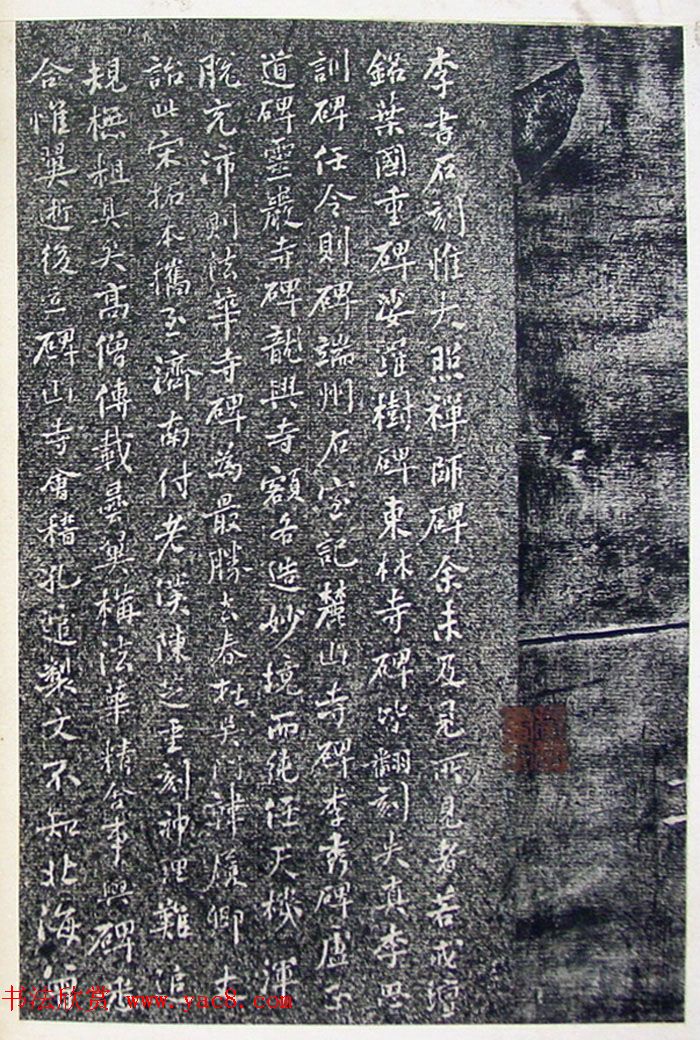 李書石刻惟大照禪師碑余未及見所見者若戒壇
銘葉國重碑娑羅樹碑東林寺碑皆翻刻失真李思
訓碑任令則碑端州石室記麓山寺碑李秀碑盧正
道碑靈巖寺碑龍興寺額各造妙境而純任天機渾
脫充沛則法華寺碑為最勝去春在吳門韓履卿丈
詒此宋拓本攜至濟南付老漢陳芝重刻神理難追
規橅粗具矣高僧傳載曇翼構法華精舍事與碑悉
合惟翼逝後立碑山寺會稽孔逭製文不知北海
书法欣赏 www.yac8.com